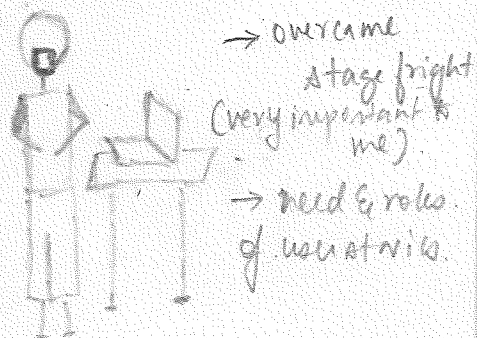 → overcame
stage fright
(very important to
me).
→ need & roles.
of user stories.